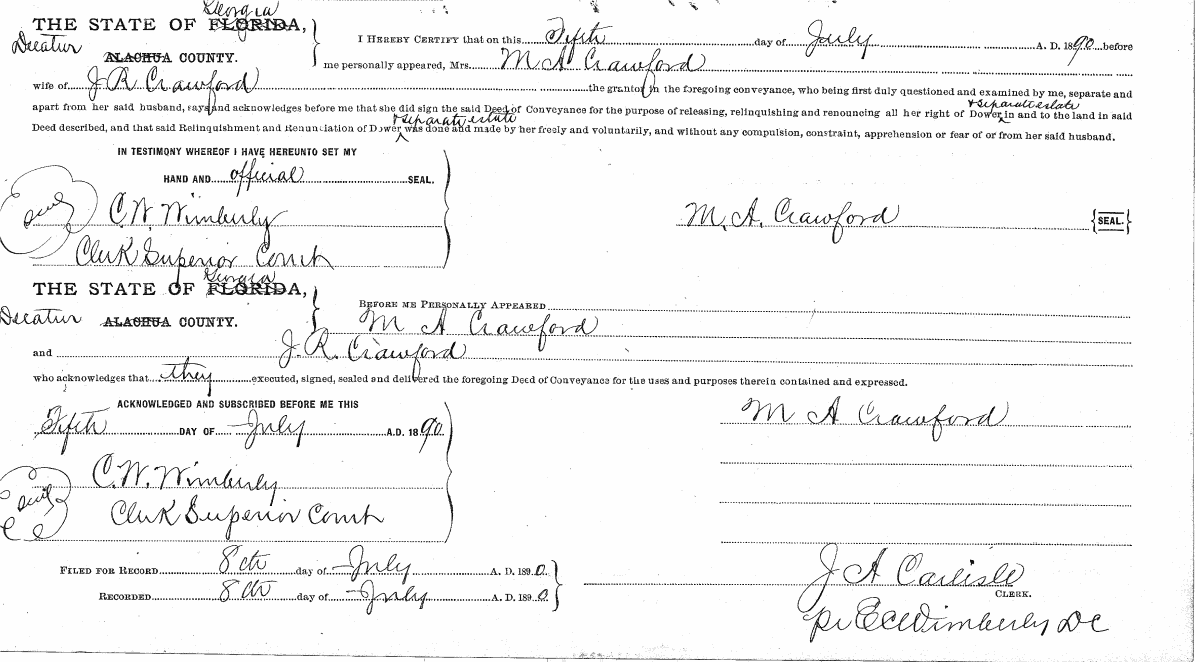 Georgia
THE STATE OF FLORIDA,
Decatur ALACHUA COUNTY.
I HEREBY CERTIFY that on this Fifth day of July A. D. 1890 before
me personally appeared, Mrs. M A Crawford
wife of J R Crawford the grantor in the foregoing conveyance, who being first duly questioned and examined by me, separate and
+ separate estate
apart from her said husband, says and acknowledges before me that she did sign the said Deed of Conveyance for the purpose of releasing, relinquishing and renouncing all her right of Dower in and to the land in said
+ separate estate
Deed described, and that said Relinquishment and Renunciation of Dower was done and made by her freely and voluntarily, and without any compulsion, constraint, apprehension or fear of or from her said husband.
IN TESTIMONY WHEREOF I HAVE HEREUNTO SET MY
HAND AND official SEAL.
Seal C. W. Wimberly
M. A. Crawford {SEAL.}
Clerk Superior Court
Georgia
THE STATE OF FLORIDA,
Decatur ALACHUA COUNTY.
BEFORE ME PERSONALLY APPEARED
M A Crawford
and J. R. Crawford
who acknowledges that they executed, signed, sealed and delivered the foregoing Deed of Conveyance for the uses and purposes therein contained and expressed.
ACKNOWLEDGED AND SUBSCRIBED BEFORE ME THIS
M A Crawford
Fifth DAY OF July A.D. 1890
Seal C. W. Wimberly
Clerk Superior Court
FILED FOR RECORD 8th day of July A. D. 1890
RECORDED 8th day of July A. D. 1890
J A Carlisle
CLERK.
pr E C Wimberly DC